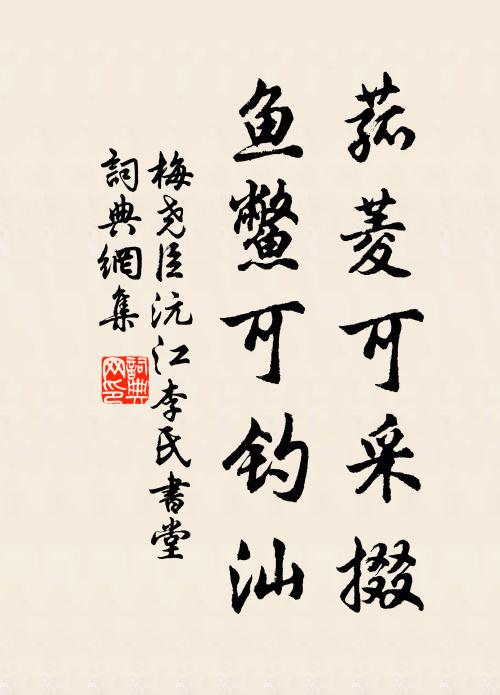 菰菱可采掇
鱼鳖可钓汕
梅尧臣沅江李氏書堂
詞典網集
詞典网印